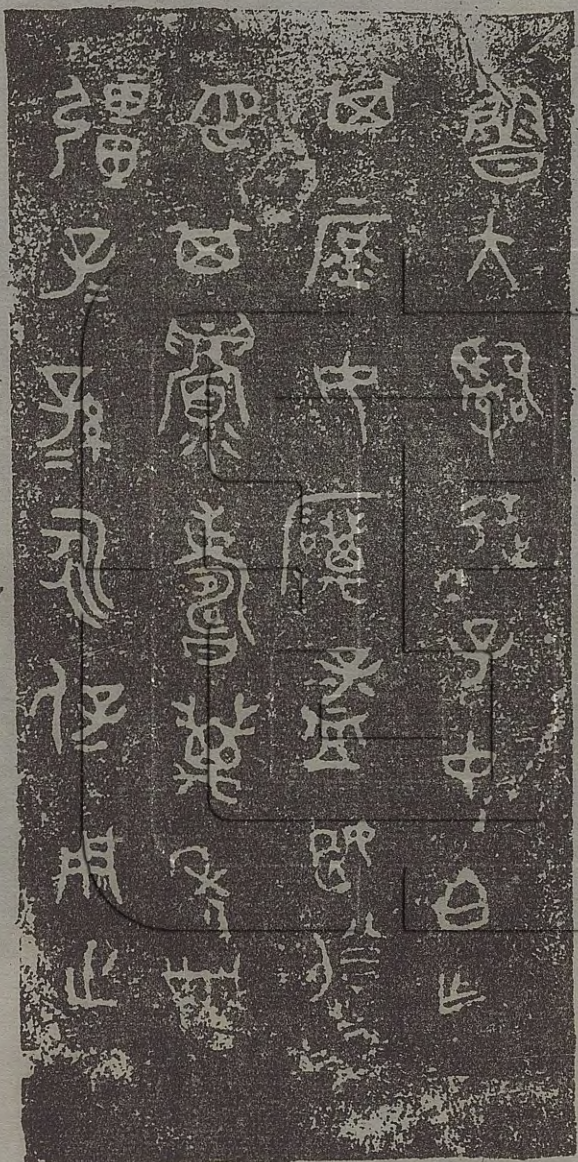 魯大司徒子中白乍
其庶女厲孟姬媵
它其眉壽萬年無
疆子=孫=永保用之